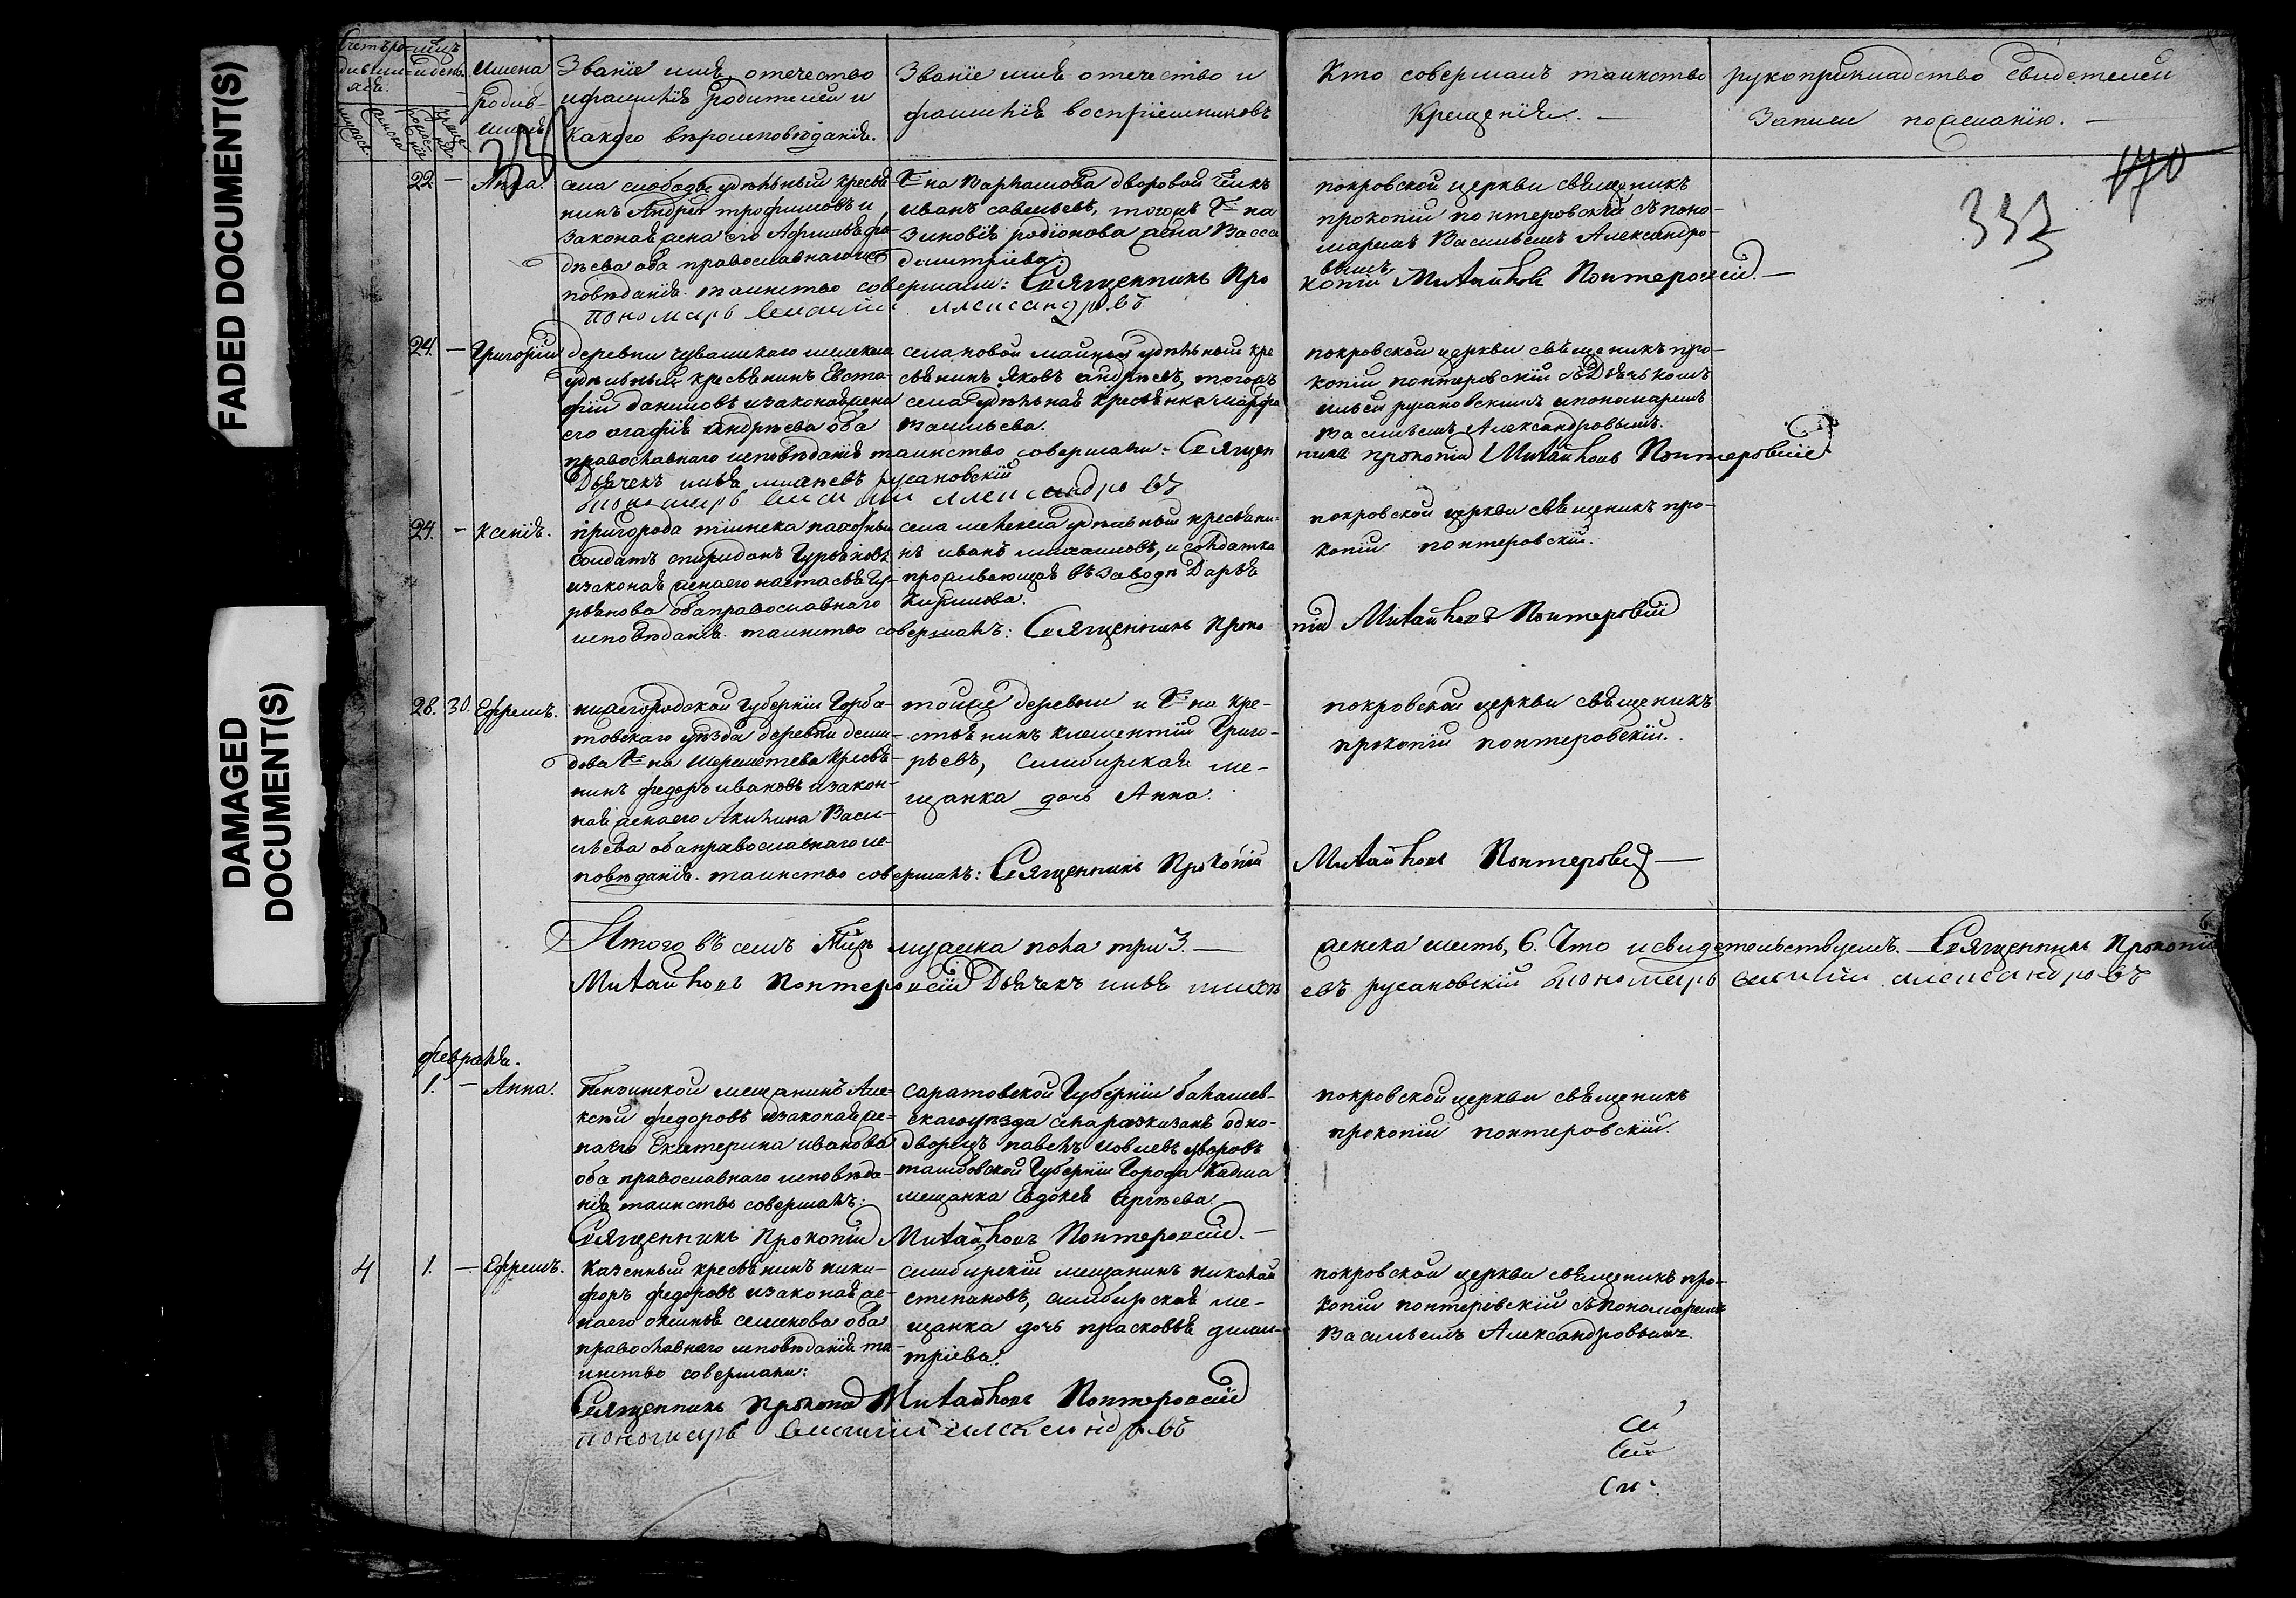 FADED DOCUMENT(S)
DAMAGED
DOCUMENT(S)
Счетъ ро-
дивши-
хся.
мѣцъ
и день
Имена
родив-
шихъ
Званіе имя, отечество
и фамилія родителей и
какого вѣроисповѣданія.
Званіе имя отечество и
фамилія воспріемниковъ
Кто совершалъ таинство
Крещенія. —
рукоприкладство свидѣтелей
Записи по желанію. —
170
333
22 — Анна.
села слободы удѣльный кресья
нинъ Андрей трофимовъ и
законая жена его
оба православнаго ис
повѣданія. таинство совершали: Священникъ Про
копій Михайловъ Понтеровскій. —
пономарь василій александровъ
Гна Варламова дворовой
иванъ савельевъ, тогожъ Гна
Зиновія родіонова жена Васса
дмитріева.
покровской церкви священикъ
прокопій понтеровскій съ поно-
маремъ Васильемъ Александро-
вымъ
24. — Григорій
деревни чувашскаго
удѣльный кресьянинъ Евста-
фій даниловъ и законая жена
его агафія андрѣева оба
православнаго исповѣданія таинство совершали: Священ
никъ прокопій Михайловъ Понтеровскій
Дьячекъ илья михѣевъ русановскій
пономарь василій александровъ
села новой майны удѣльной кре
сьянинъ яковъ андрѣевъ, тогожъ
села удѣльная кресьянка марфа
васильева.
покровской церкви священикъ про-
копій понтеровскій съ Дьячькомъ
ильей русановскимъ и пономаремъ
Васильемъ Александровымъ.
24. — Ксенія.
пригорода тіинска пахотный
солдатъ спиридонъ Гурьяновъ
и законая жена его настасья Гу-
рьянова оба православнаго
исповѣданія. таинство совершалъ: Священникъ Проко
пій Михайловъ Понтеровскій
села удѣльный кресьяни-
нъ иванъ михаиловъ, и солдатка
проживающая въ заводѣ Дарья
Кирилова.
покровской церкви священикъ про-
копій понтеровскій.
28. 30. Ефремъ.
нижегородской Губерніи Горба-
товскаго уѣзда деревни деми-
дова Гна Шереметева кресья-
нинъ федоръ ивановъ и закон-
ная жена его Акилина Васи-
льева оба православнаго ис-
повѣданія. таинство совершалъ: Священникъ Прокопій
Михайловъ Понтеровскій —
тойже деревни и Гна кре-
стьянинъ клементій Григо-
рьевъ, Симбирская ме-
щанка дочь Анна.
покровской церкви священикъ
прокопій понтеровскій.
Итого въ семъ мцѣ мужеска пола три 3. — женска шесть, 6. Что и свидетельствуемъ. — Священникъ Прокопій
Михайловъ Понтеровскій Дьячекъ илья михѣевъ русановскій пономарь василій александровъ
февраля.
1. — Анна.
Пензинской мещанинъ Але-
ксѣй федоровъ и законая же-
на его Екатерина иванова
оба православнаго исповѣда-
нія таинство совершалъ:
Священникъ Прокопій Михайловъ Понтеровскій. —
саратовской Губерніи балашев-
скаго уѣзда одно-
дворецъ павелъ
тамбовской Губерніи Города
мещанка Евдокея
покровской церкви священикъ
прокопій понтеровскій.
4 1. — Ефремъ.
Казенный кресьянинъ ники-
форъ федоровъ и законая же-
на его семенова оба
православнаго исповѣданія та-
инство совершали:
Священникъ Прокопій Михайловъ Понтеровскій
пономарь василій александровъ
симбирскій мещанинъ николай
степановъ, симбирская ме-
щанка дочь прасковья дми-
тріева.
покровской церкви священикъ про-
копій понтеровскій съ пономаремъ
Васильемъ Александровымъ.